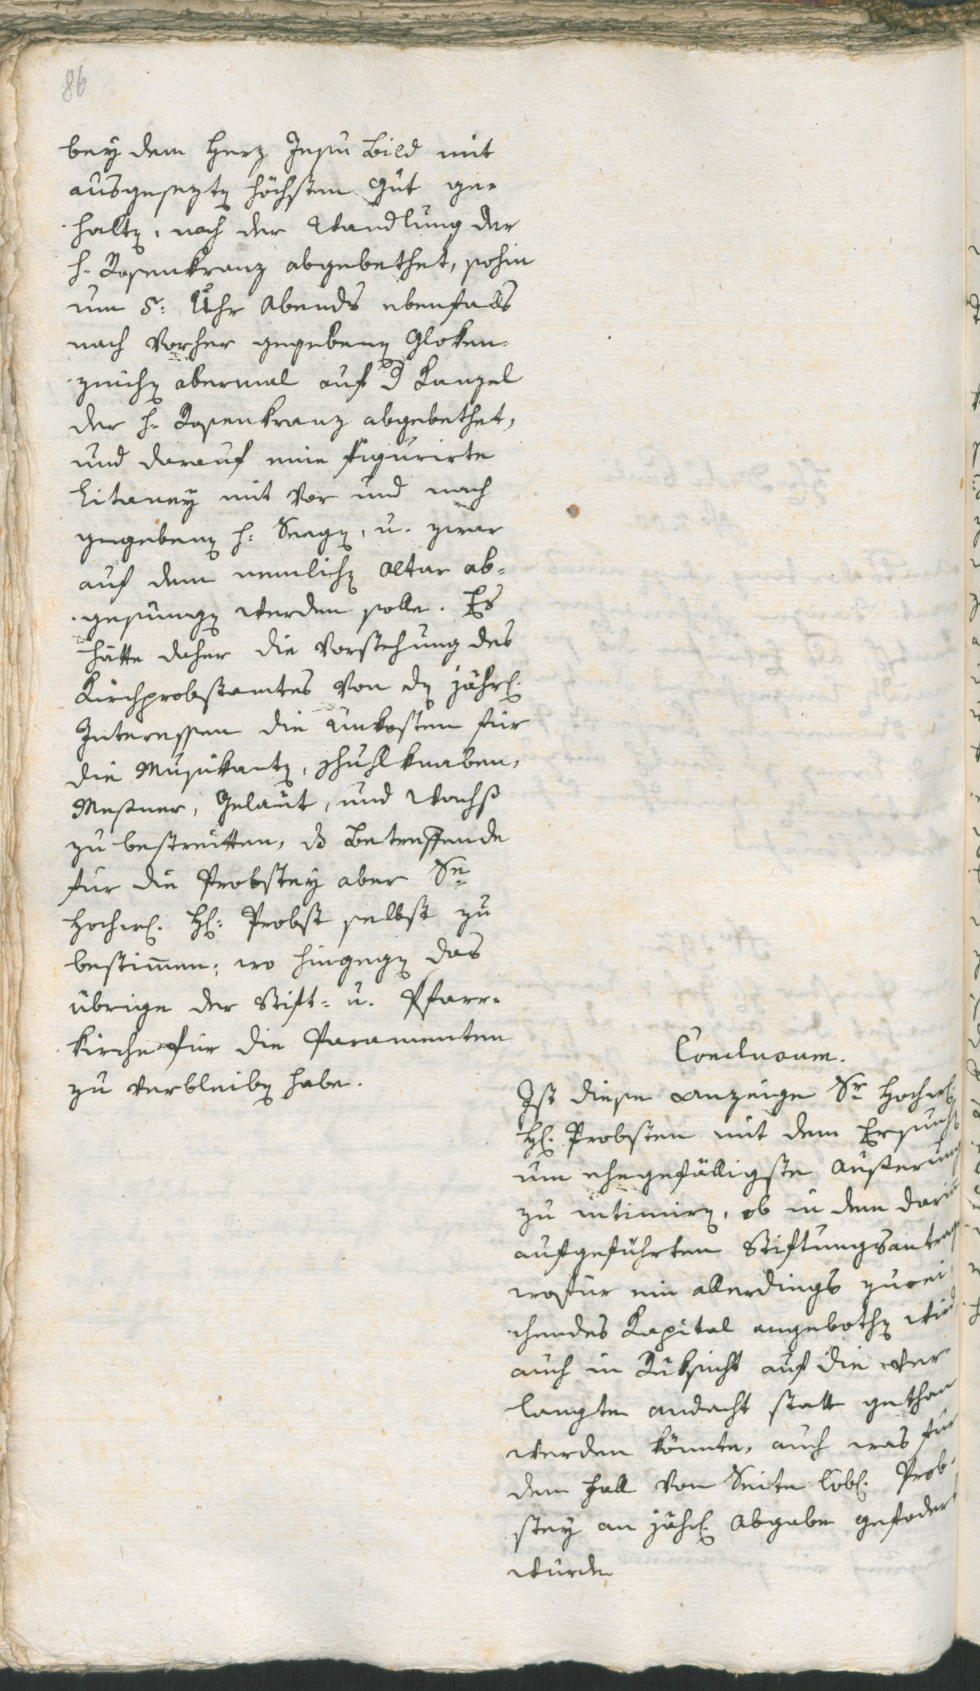 86
bey dem Herz Jesu Bild mit
ausgesezten höchsten Gut ge-
halten, nach der Wandlung der
h. Rosenkranz abgebethet, sohin
um 5: Uhr Abends ebenfalls
nach vorher gegebenen Gloken-
zeichen abermal auf d Kanzel
der h. Rosenkranz abgebethet,
und darauf eine figurirte
Litaney mit vor und nach
gegebenen h: Seegen, u. zwar
auf dem nemlichen Altar ab-
gesungen werden solle. Es
hätte daher die Vorstehung des
Kirchprobstamtes von den jährl.
Interessen die Unkosten für
die Musikanten, Schuhlknaben,
Meßner, Geläut, und Wachs
zu bestreitten, das Betreffende
für die Probstey aber Se
Hochw. H: Probst selbst zu
bestimen; wo hingegen das
übrige der Stift- u. Pfarr-
Kirche für die Paramenten
zu verbleiben habe.
Conclusum.
Ist diese Anzeige Sr Hochw.
H. Probsten mit dem Ersuchen
um ehegefälligste Äußerung
zu intimiren, ob in dem darin
aufgeführten Stiftungsantrag
wofür ein allerdings zurei-
chendes Kapital angebothen wird
auch in Rüksicht auf die ver
langte Andacht statt gethan
werden könnte, auch was für
den Fall von Seite löbl. Prob-
stey an jährl. Abgabe gefoder
würde